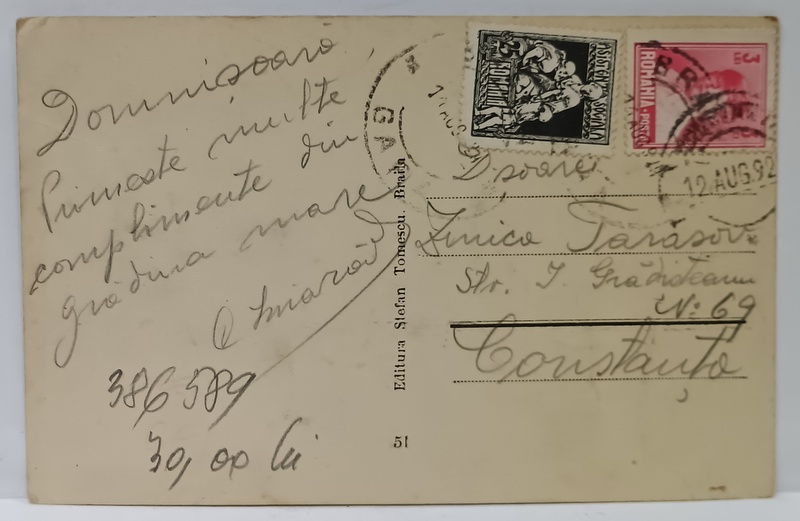 Domnisoară
Primeste multe
complimente din
grădina mare
386589
30,00 lei
Editura Ștefan Tomescu. Braila
51
ASISTENȚA SOCIALA
ROMANIA
3 LEI
ROMANIA-POSTA
BR
GA
12 AUG.92
Dșoarei
Jenica Tarasov
Str. I. Grădișteanu
No: 69
Constanța